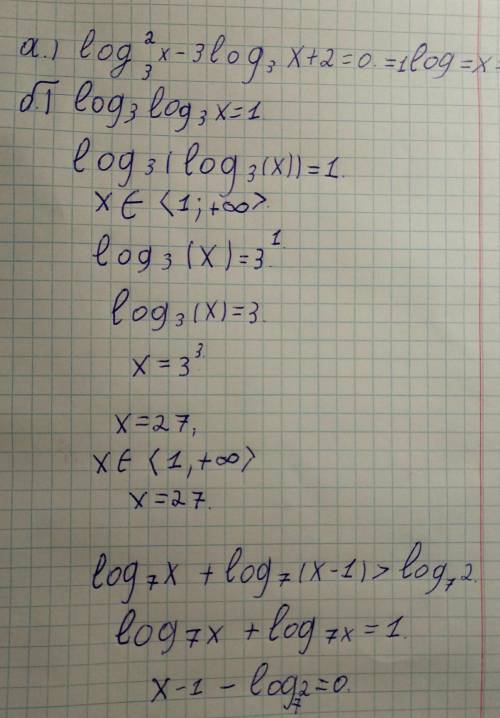 а.) log₃²x-3log₃ x+2=0. =1log=x=
б.) log₃ log₃ x=1
log₃(log₃(x))=1.
x∈⟨1;+∞⟩.
log₃(x)=3¹.
log₃(x)=3.
x=3³.
x=27,
x∈⟨1,+∞⟩
x=27.
log₇x +log₇(x-1)>log₇2.
log₇x +log₇x=1.
x-1-log₇2=0.